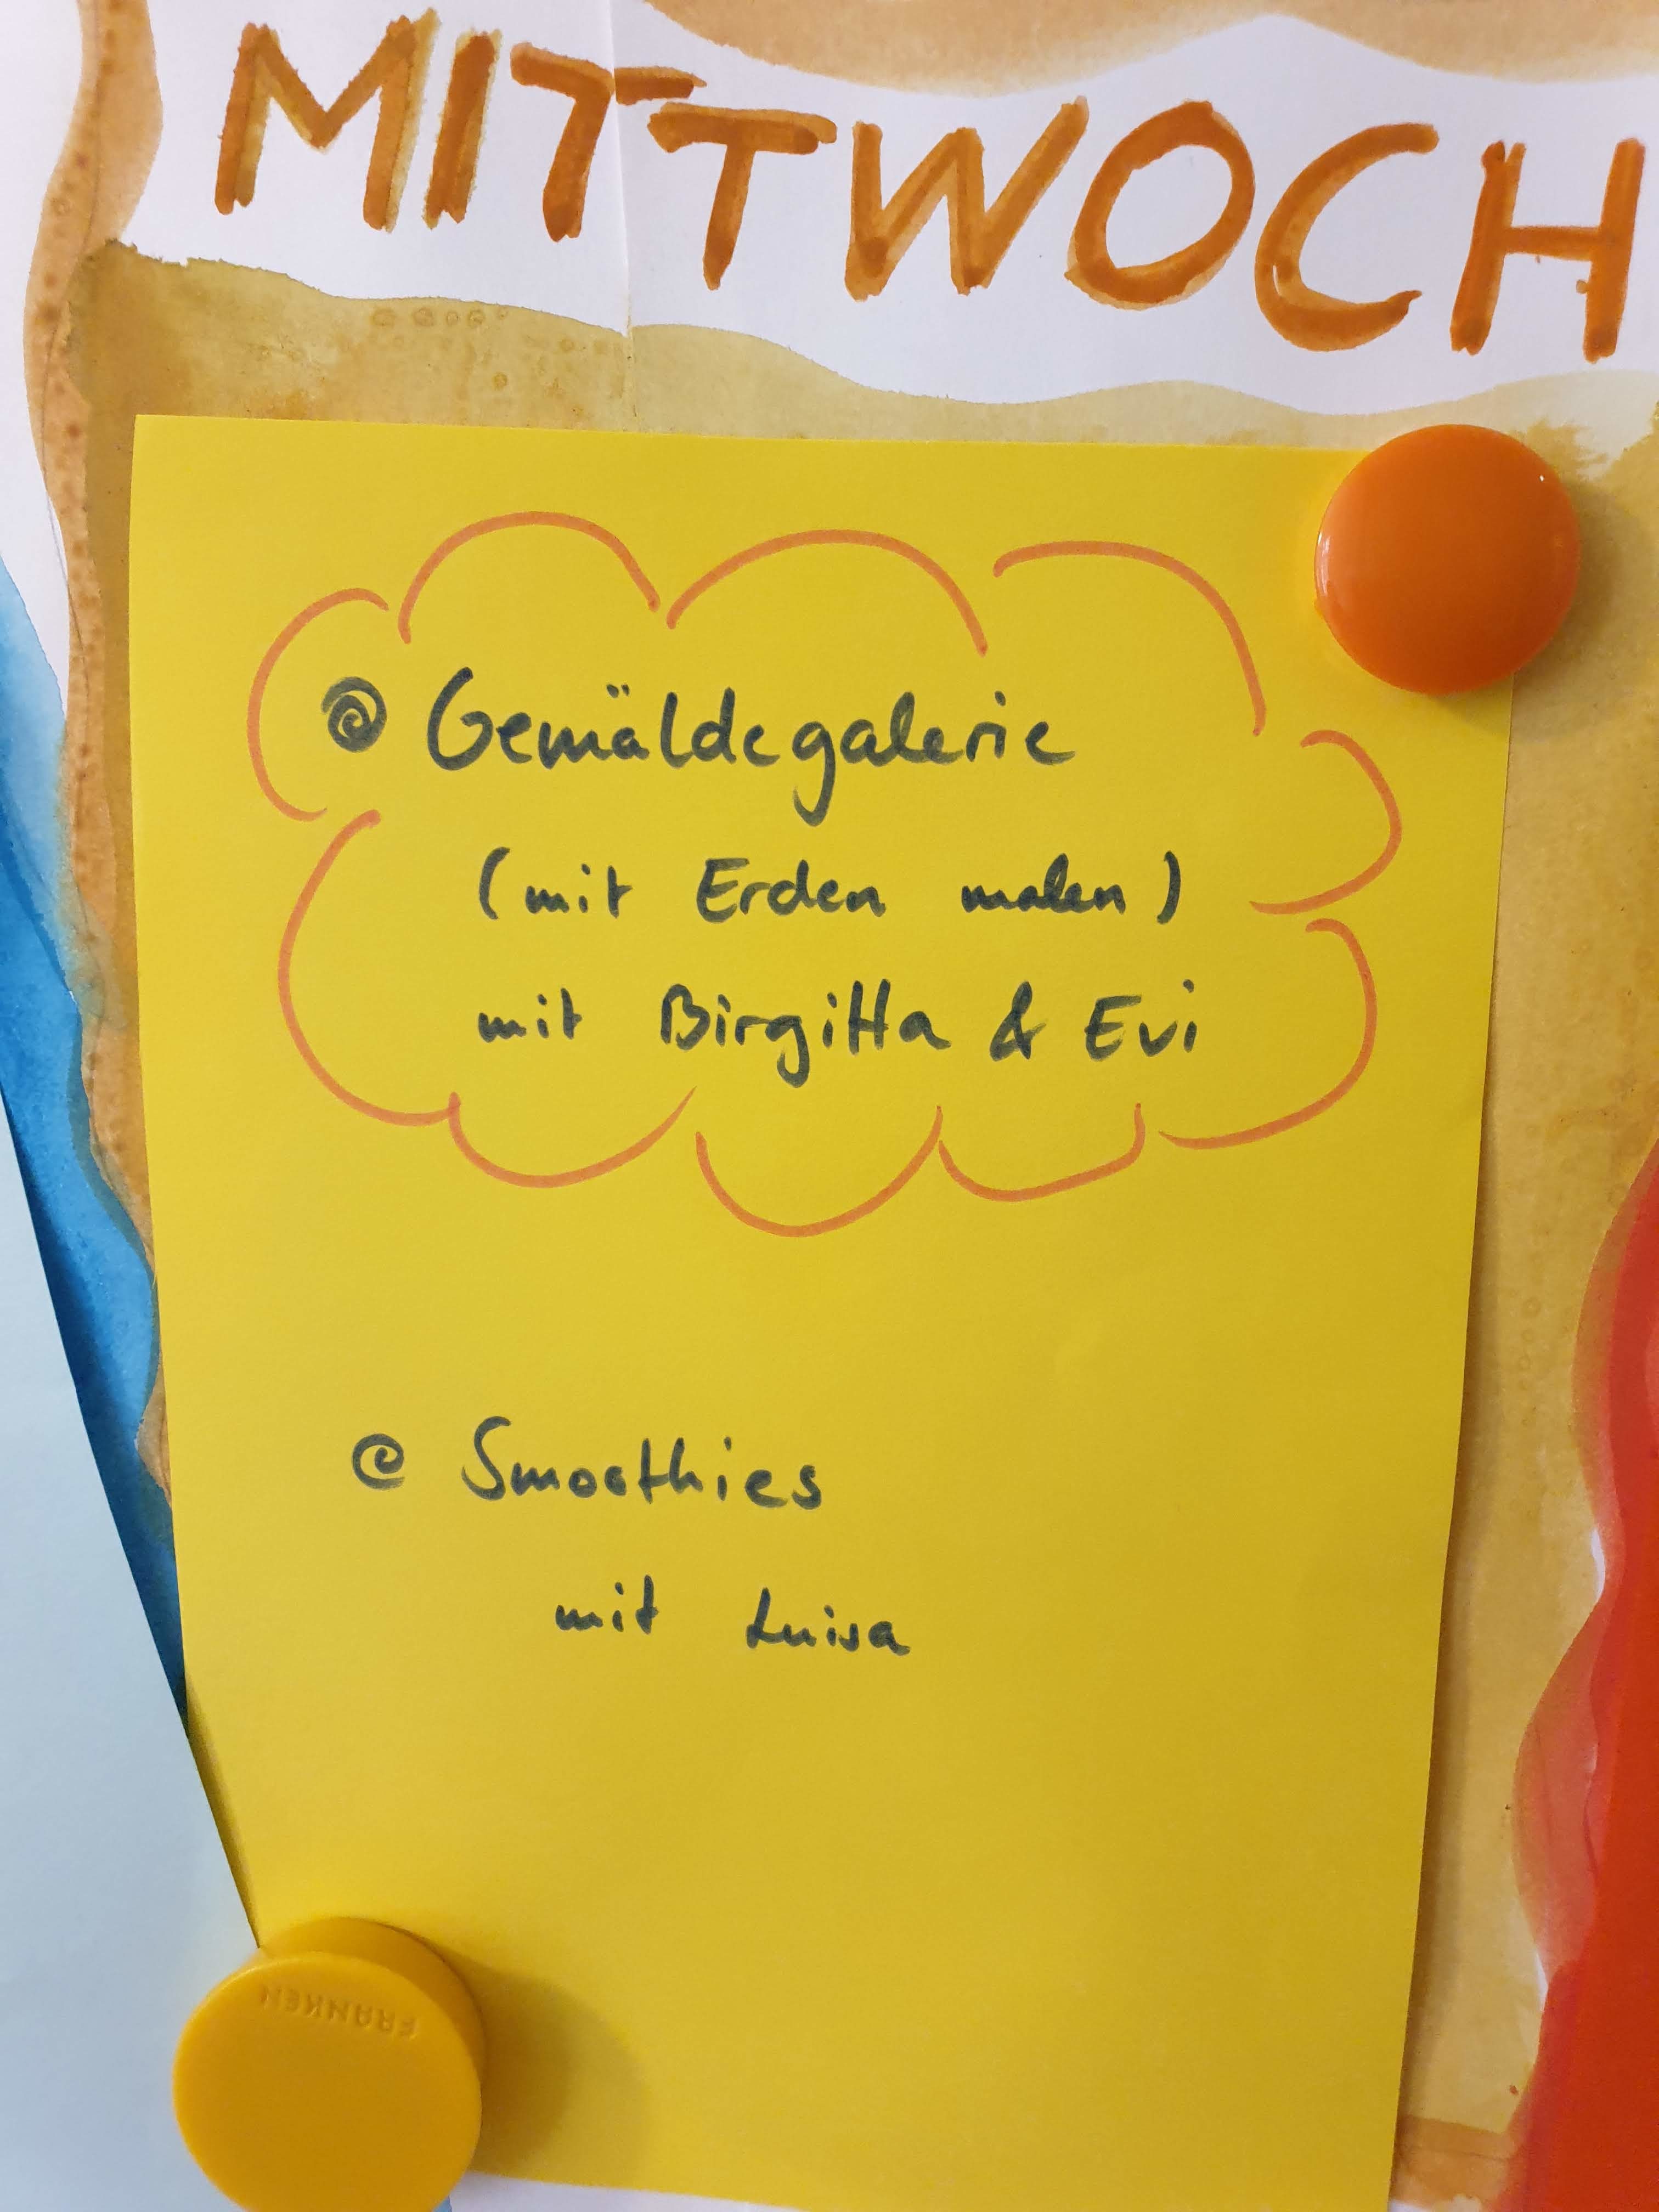 MITTWOCH
@ Gemäldegalerie
(mit Erden malen)
mit Birgitta & Evi
@ Smoothies
mit Luisa
FRANKEN